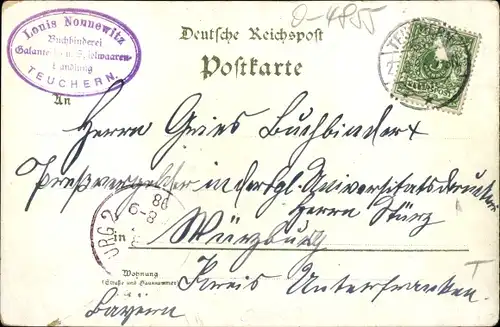 Louis Nonnewitz
Buchbinderei
Galanterie- u. Spielwaaren-
Handlung
TEUCHERN.
0-4855
Deutsche Reichspost
Postkarte
TEUCHERN
An
Herrn Gries Buchbinder
Preßvergolder in der kgl. Universitätsdruckerei
Herrn Stürz
in Würzburg
BRG 2
8-9
98
Wohnung
(Straße und Hausnummer)
Kreis Unterfranken
Bayern